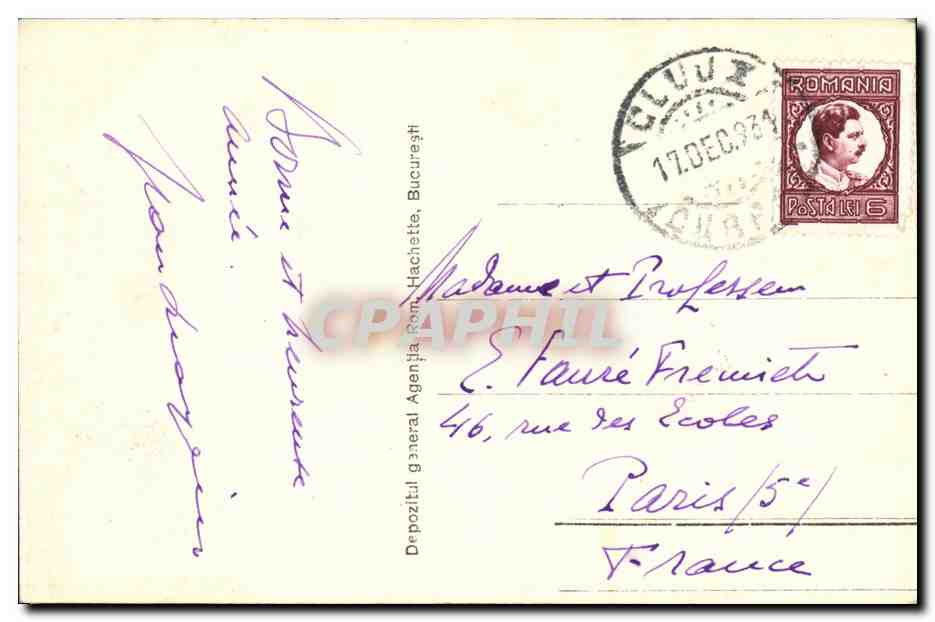 Bonne et heureuse
année
Depozitul general Agenția Rom. Hachette, București
CLUJ
17.DEC.931
ROMANIA
POSTA LEI 6
Madame et Professeur
E. Fauré Fremiet
46, rue des Ecoles
Paris (5e)
France
CPAPHIL